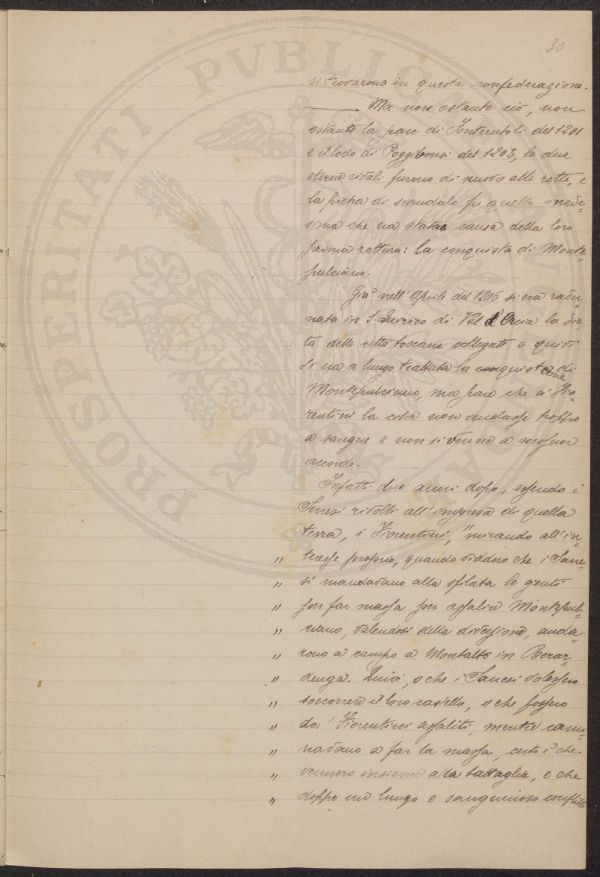 30
si trovarono in questa confederazione.
Ma non ostante ciò, non
ostante la pace di Fonterutoli del 1201
e il lodo di Poggibonsi del 1203, le due
eterne rivali furono di nuovo alle rotte, e
la pietra di scandalo fu quella mede-
sima che era stata causa della loro
prima rottura: la conquista di Monte-
pulciano.
Già nell'Aprile del 1205 si era radu-
nata in S. Quirico di Val d'Orcia la Die-
ta delle città toscane collegate e quivi
si era a lungo trattata la conquista di
Montepulciano, ma pare che a' Fio-
rentini la cosa non andasse troppo
a sangue e non si venne a nessun
accordo.
Infatti due anni dopo, essendo i
Senesi rivolti all'impresa di quella
terra, i Fiorentini, "mirando all'in-
" teresse proprio, quando viddero che i Sane-
" si mandavano alla sfilata le genti
" per far massa per assalire Montepul-
" ciano, valendosi della diversione, anda-
" rono a campo a Montalto in Berar-
" denga. Quivi, o che i Sanesi volessero
" soccorrere il loro castello, o che fossero
" da' Fiorentini assaliti, mentre cami-
" navano a far la massa, certo è che
" vennero insieme alla battaglia, e che
" doppo un lungo e sanguinoso conflitto
PROSPERITATI PVBLICAE